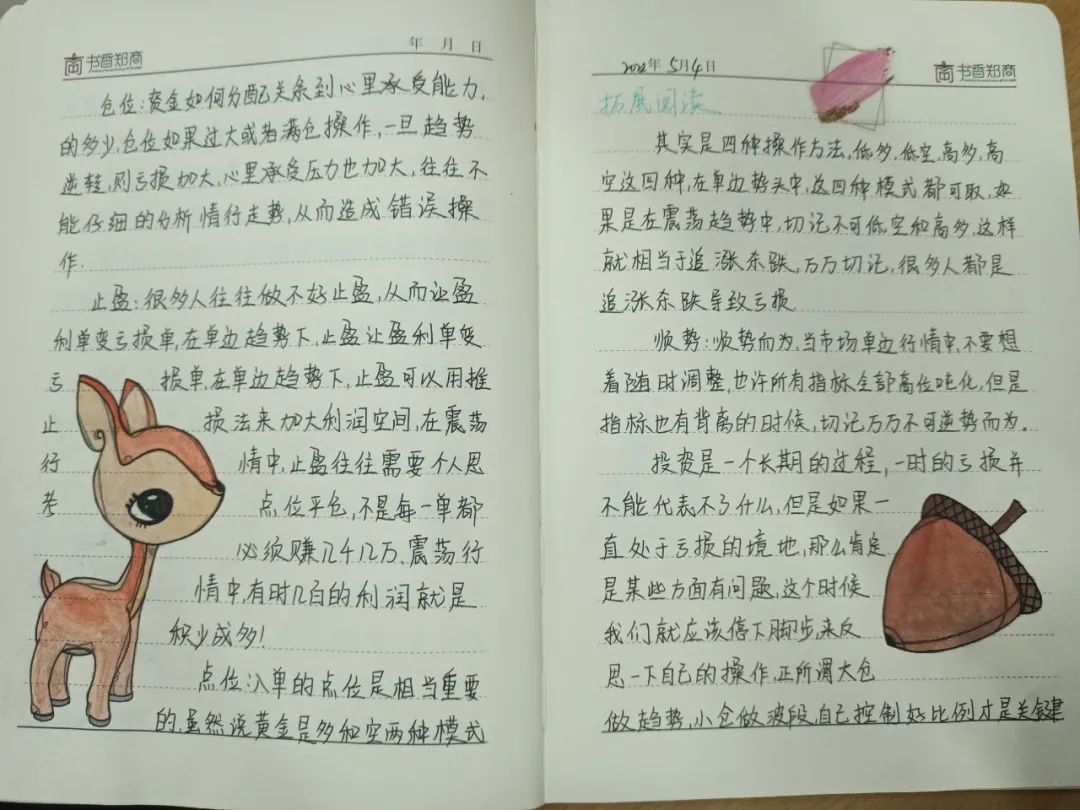 年 月 日
书香郑商
仓位:资金如何分配关系到心里承受能力,
的多少,仓位如果过大或者满仓操作,一旦趋势
逆转,则亏损加大,心里承受压力也加大,往往不
能仔细的分析情行走势,从而造成错误操
作.
止盈:很多人往往做不好止盈,从而让盈
利单变亏损单,在单边趋势下,止盈让盈利单变
亏 损单,在单边趋势下,止盈可以用推
止 损法来加大利润空间,在震荡
行 情中,止盈往往需要个人思
考 点位平仓,不是每一单都
必须赚几千几万,震荡行
情中,有时几百的利润就是
积少成多!
点位:入单的点位是相当重要
的,虽然说黄金是多和空两种模式
2022年5月4日
书香郑商
拓展阅读
其实是四种操作方法,低多,低空,高多,高
空这四种,在单边势头中,这四种模式都可取,如
果是在震荡趋势中,切记不可低空和高多,这样
就相当于追涨杀跌,万万切记,很多人都是
追涨杀跌导致亏损
顺势:顺势而为,当市场单边行情中,不要想
着随时调整,也许所有指标全部高位吨化,但是
指标也有背离的时候,切记万万不可逆势而为。
投资是一个长期的过程,一时的亏损并
不能代表不了什么,但是如果一
直处于亏损的境地,那么肯定
是某些方面有问题,这个时候
我们就应该停下脚步,来反
思一下自己的操作,正所谓大仓
做趋势,小仓做波段,自己控制好比例才是关键